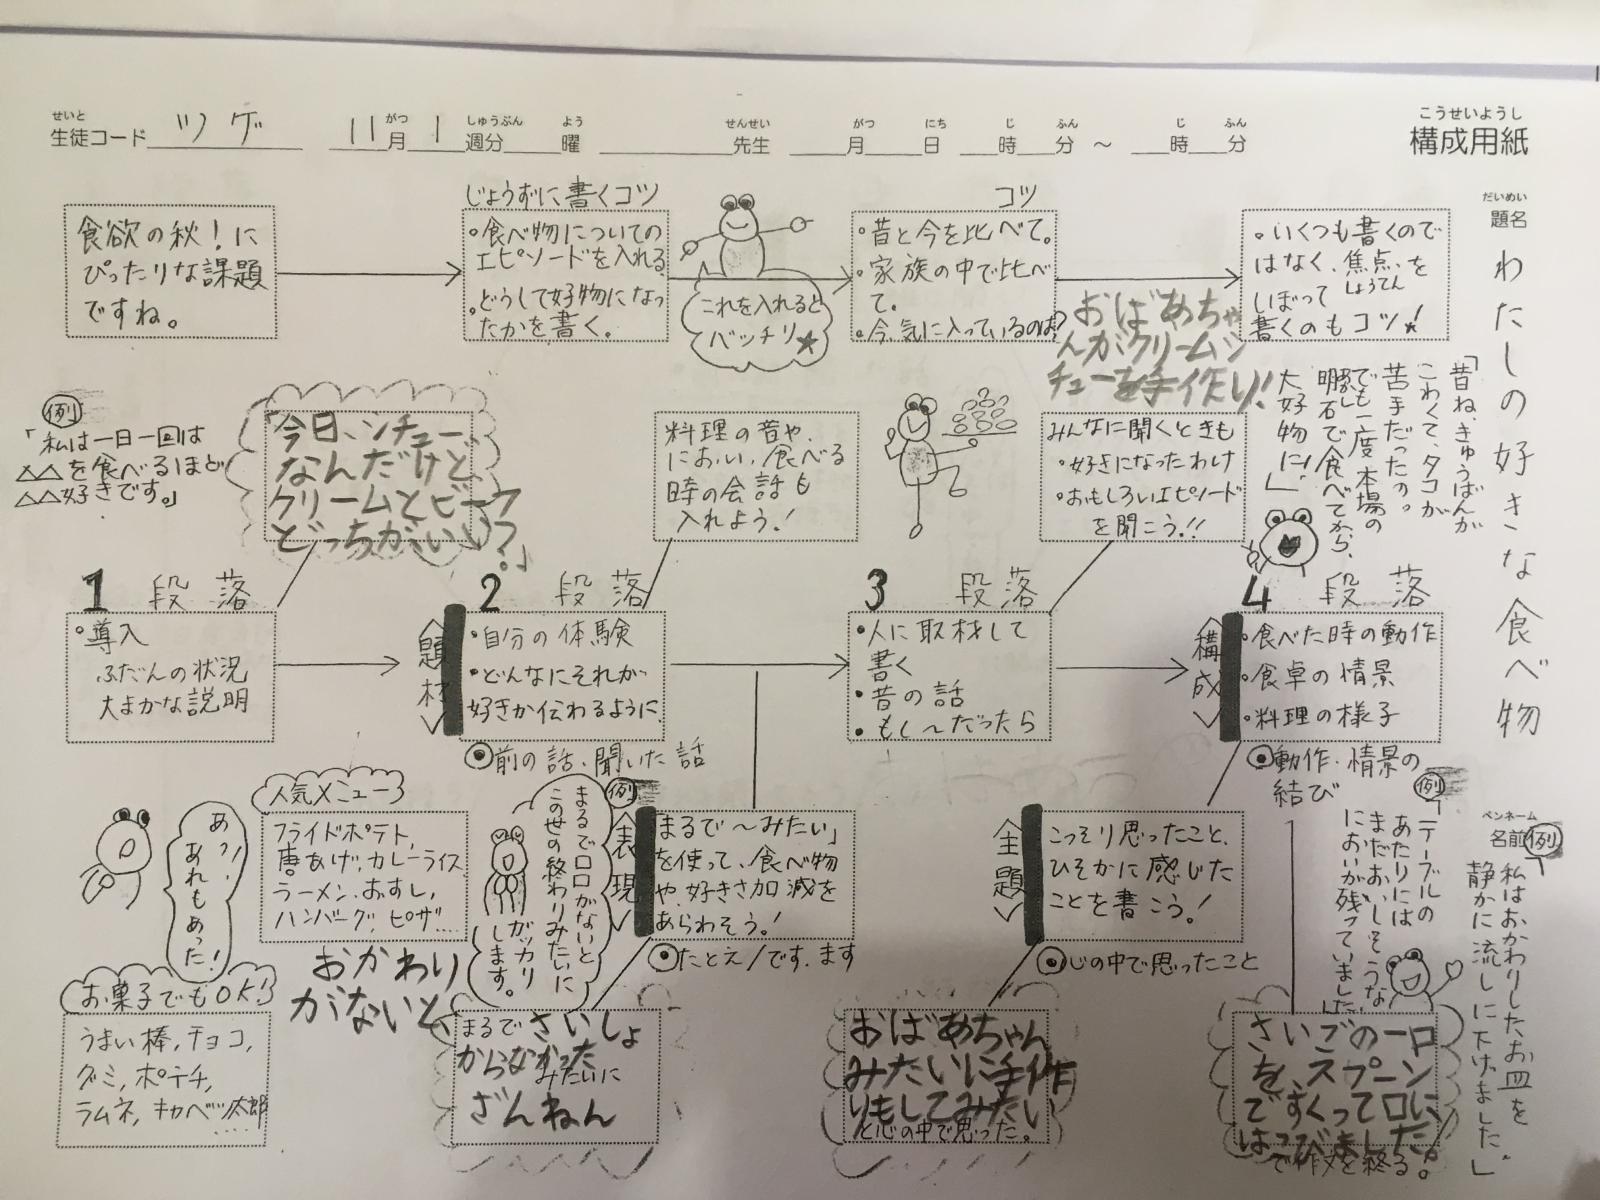 せいと
生徒コード ツゲ
11月 がつ
1 週分 しゅうぶん
曜 よう
先生 せんせい
月 がつ
日 にち
時 じ
分 ふん
～
時 じ
分 ふん
こうせいようし
構成用紙
だいめい
題名
わたしの好きな食べ物
食欲の秋！に
ぴったりな課題
ですね。
じょうずに書くコツ
・食べ物についての
エピソードを入れる
・どうして好物になっ
たかを書く。
これを入れると
バッチリ★
コツ
・昔と今を比べて。
・家族の中で比べ
て。
・今、気に入っているのは？
・いくつも書くので
はなく、焦点を
しょうてん
しぼって
書くのもコツ！
おばあちゃ
んがクリームシ
チューを手作り！
「昔ね、きゅうばんが
こわくて、タコが
苦手だったの。
でも一度本場の
明石で食べてから、
大好物に！」
例
「私は一日一回は
△△を食べるほど
△△好きです。」
「今日、シチュー、
なんだけど、
クリームとビーフ
どっちがいい？」
料理の音や、
におい、食べる
時の会話も
入れよう！
みんなに聞くときも
・好きになったわけ
・おもしろいエピソード
を聞こう！！
1 段落
・導入
ふだんの状況
大まかな説明
2 段落
〈題材〉
・自分の体験
・どんなにそれが
好きか伝わるように
◉前の話、聞いた話
3 段落
・人に取材して
書く
・昔の話
・もし～だったら
4 段落
〈構成〉
・食べた時の動作
・食卓の情景
・料理の様子
◉動作・情景の
結び
あっ！
あれもあった！
人気メニュー
フライドポテト、
唐あげ、カレーライス
ラーメン、おすし、
ハンバーグ、ピザ…
例
まるで口口がないと
この世の終わりみたいに
ガッカリ
します。
〈表現〉
まるで～みたい」
を使って、食べ物
や、好きさ加減を
あらわそう！
◉たとえ/です、ます
主題〉
こっそり思ったこと、
ひそかに感じた
ことを書こう！
◉心の中で思ったこと
例
「テーブルの
あたりには
まだおいしそうな
においが残っていました」
ペンネーム
名前
例
「私はおかわりしたお皿を
静かに流しに下げました。」
お菓子でもOK！
うまい棒、チョコ、
グミ、ポテチ、
ラムネ、キャベツ太郎
おかわり
がないと、
まるでさいしょ
からなかった
みたいに
ざんねん
おばあちゃん
みたいに手作
りもしてみたい
と心の中で思った。
さいごの一口
を、スプーン
ですくって口に
はこびました。
で作文を終る。